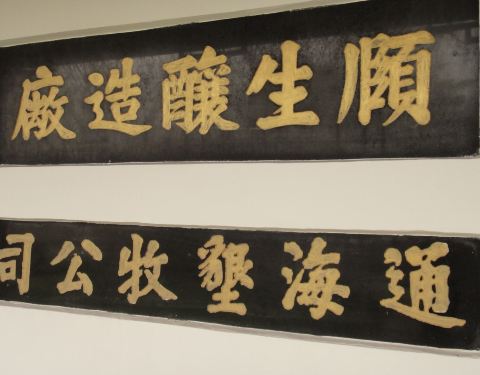 頤生釀造廠
通海墾牧公司